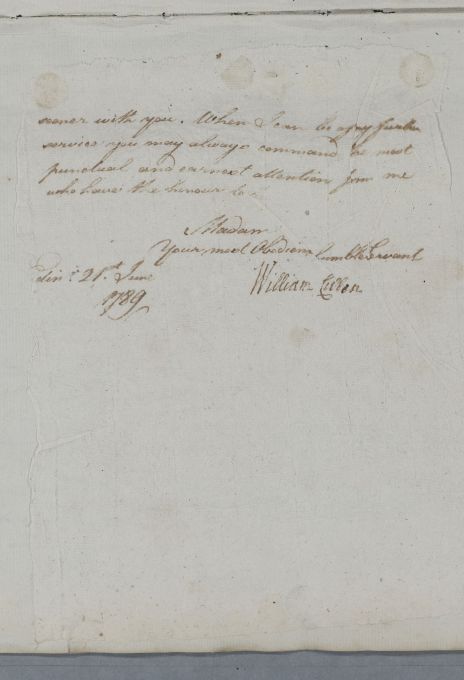 sooner with you. When I can be of any further
service you may always command the most
punctual and earnest attention from me
who have the honour to be
Madam
Your most Obedient humble Servant
Edinr. 21st June
1789
William Cullen